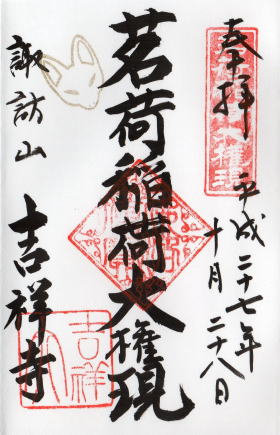 奉拝
平成二十七年
十月二十八日
茗荷稲荷大権現
諏訪山
吉祥寺
吉祥